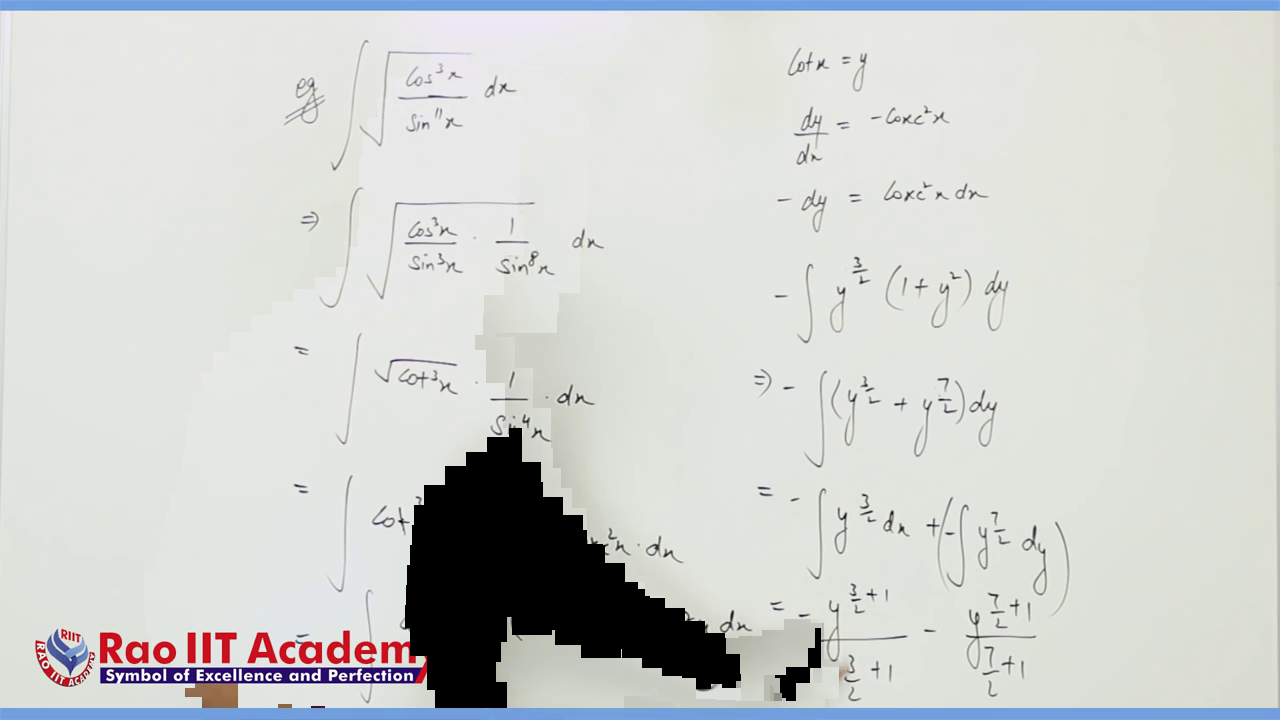 eg ∫ √(cos³x / sin¹¹x) dx
⇒ ∫ √(cos³x / sin³x · 1 / sin⁸x) dx
= ∫ √cot³x · 1 / sin⁴x · dx
= ∫ cot x · dx
= ∫ dx
cotx = y
dy/dx = -cosec²x
- dy = cosec²x dx
- ∫ y^(3/2) (1 + y²) dy
⇒ - ∫ (y^(3/2) + y^(7/2)) dy
= - ∫ y^(3/2) dx + (-∫ y^(7/2) dy)
= - y^(3/2 + 1) / (3/2 + 1) - y^(7/2 + 1) / (7/2 + 1)
RIIT
RAO IIT ACADEMY
Rao IIT Academ
Symbol of Excellence and Perfection